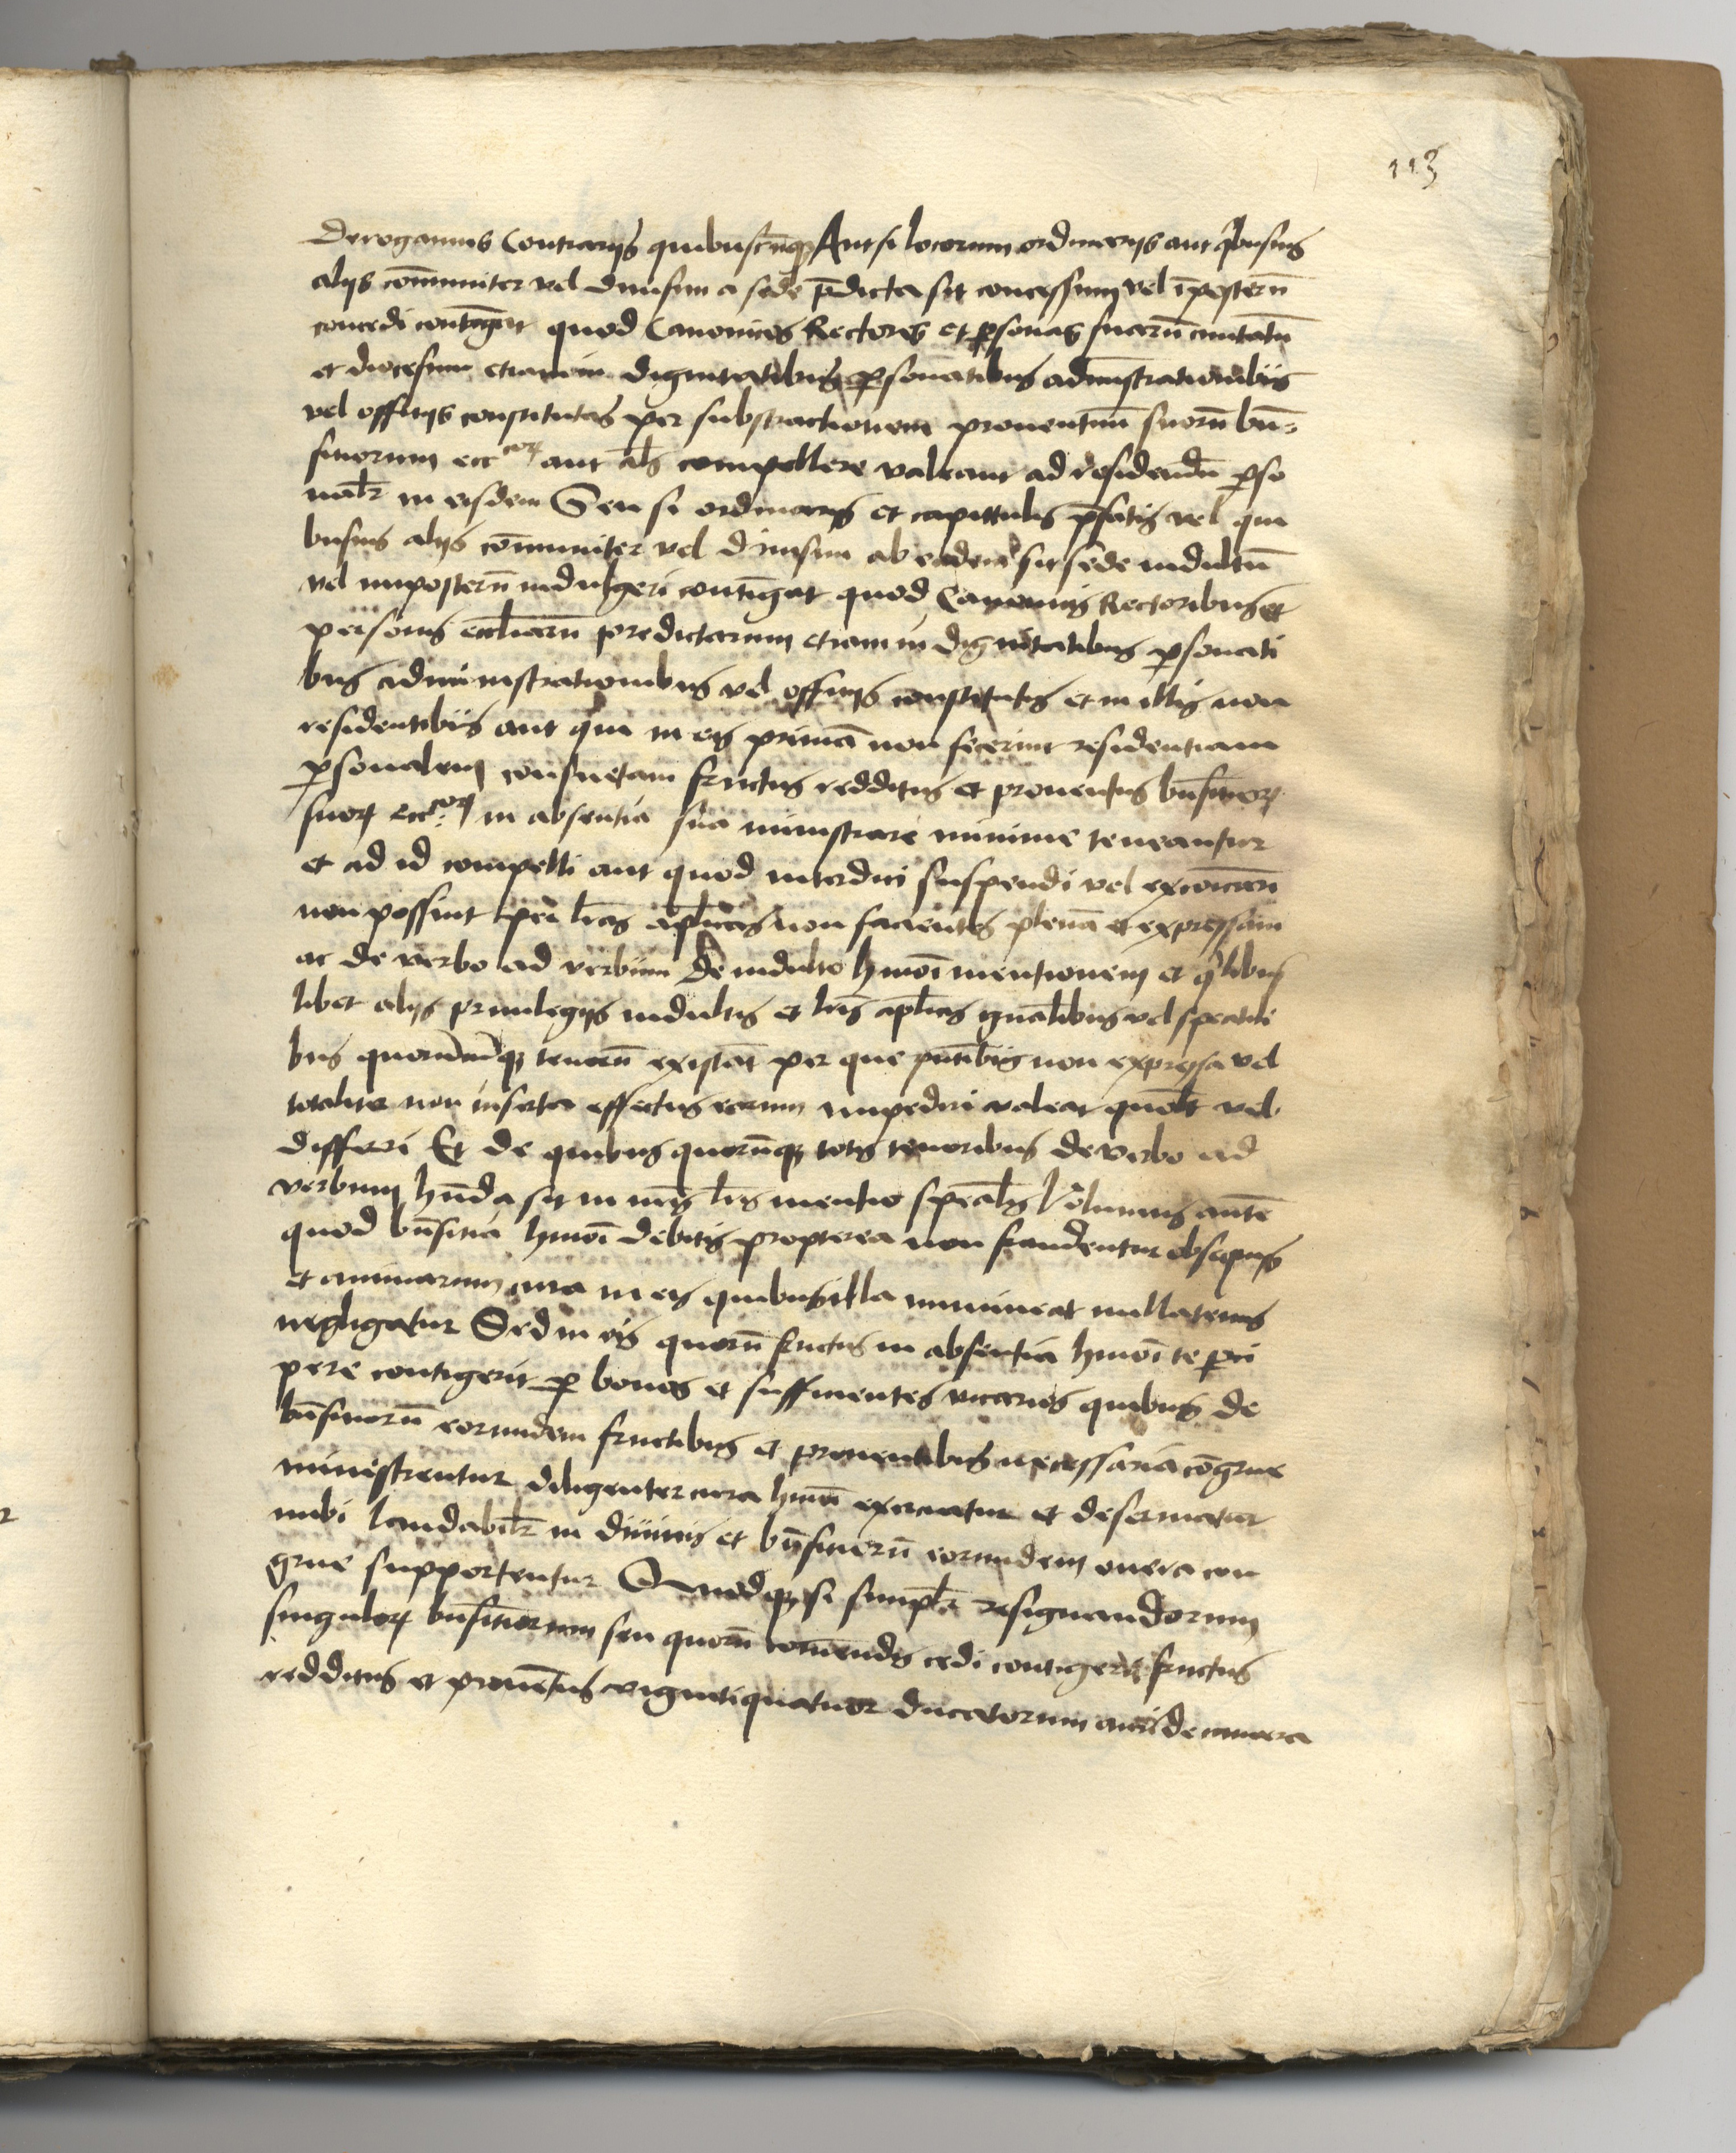 113
Derogamus Contrarijs quibuscūqȝ Aut si locorum ordinarijs aut qͥbusuis
alijs cōmuniter vel diuisim a sede p̄dicta sit concessum vel īposterū
concedi contīgat quod Canonicos Rectores et ꝑsonas suarū ciuitatū
et diocesum etiam in dignitatibus ꝑsonatibus admīstrationibus
vel offitijs constitutas per substractionem prouentuū suorū bn̄
fitiorum ecc^corꝝ aut al̄s compellere valeant ad residendū ꝑso
nalr̄ in eisdem Seu si ordinarijs et capittulis p̄fatis vel qui
busuis alijs cōmuniter vel diuisim ab eadem sit sede indultū
vel imposterū indulgeri contīgat quod Canonicis Rectoribus et
personis eccl̄iarū predictarum etiam in dignitatibus ꝑsonati
bus administrationibus vel offitijs constitutis et in illis non
residentibus aut qui in eis primā non fecerint residentiam
ꝑsonalem consuetam fructus redditus et prouentus bn̄fitiorꝝ
suorꝝ ecc^corꝝ in absentia sua ministrare minime teneantur
et ad id compelli aut quod interdici suspendi vel excōicari
non possint per lr̄as apl̄icas non facientes plenā et expressam
ac de verbo ad verbum de indulto hmōi mentionem et qͥbus
libet alijs priuilegijs indultis et lr̄is apl̄icis gn̄alibus vel speciali
bus quorūcūqȝ tenorū existāt per que pn̄tibus non expressa vel
totaliter non inserta effectus earum impediri valeat quol̄t vel
differri Et de quibus quorūqȝ totis tenoribus de verbo ad
verbum hn̄da sit in nr̄is lr̄is mentio spēalis Volumus autē
quod bn̄fitia hmōi debitis propterea non fraudentur obsequijs
et animarum cura in eis quibus illa imineat nullatenus
negligatur Sed in eis quorū fructus in absentia hmōi te ꝑci
pere contigerit ꝑ bonos et suffitientes vicarios quibus de
bn̄fitiorū eorundem fructibus et prouentibus necessaria cōgrue
ministrentur diligenter cura hmōi exerceatur et deseruiatur
inibi laudabilr̄ in diuinis et bn̄fitiorū eorundem onera con
grue supportentur Quodqȝ si simplr̄ resignandorum
singulorꝝ bn̄fitiorum seu quorū comēndis cedi contigerit fructus
redditus et prouētus vigintiquatuor ducatorum auri de camera